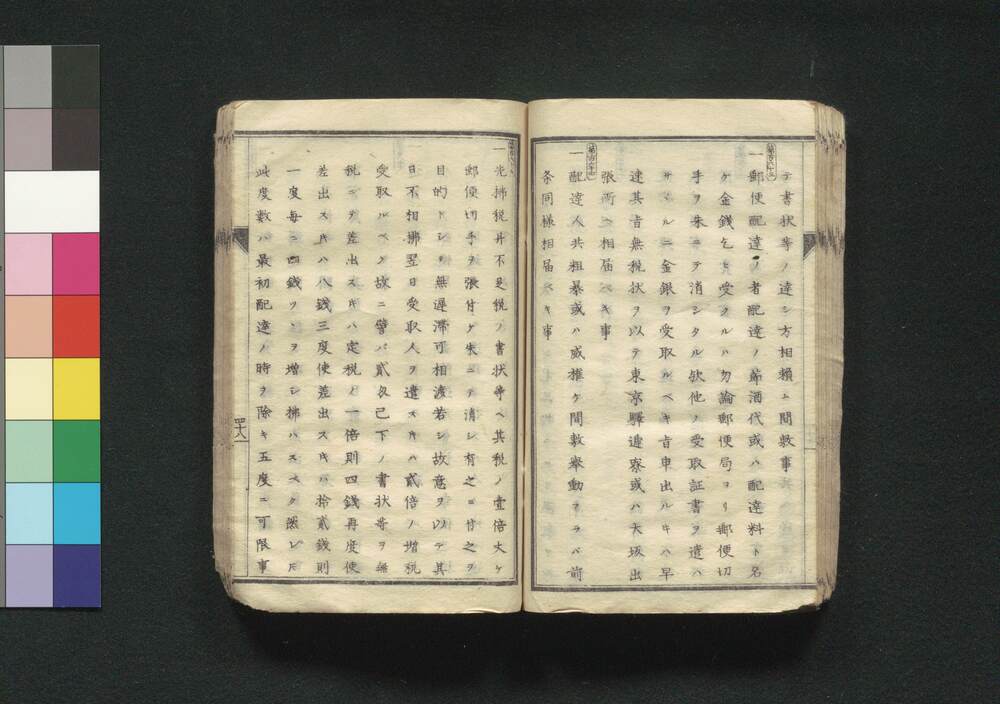 テ書状等ノ達シ方相頼ム間敷事
第百六十五
一郵便配達ノ者配達ノ節酒代或ハ配達料ト名
ケ金錢乞ヒ受クルハ勿論郵便局ヨリ郵便切
手ヲ朱ニテ消シタル欤他ノ受取証書ヲ遣ハ
サヾルニ金銀ヲ受取ルベキ旨申出ルキハ早
速其旨無税状ヲ以テ東京驛逓寮或ハ大坂出
張所ヘ相届ベキ事
第百六十六
一配達人共粗暴或ハ威権ケ間敷舉動アラバ前
条同様相届ベキ事
一先拂税并不足税ノ書状等ヘ其税ノ壹倍大ケ
郵便切手ヲ張付ケ朱ニテ消シ有之ニ付之ヲ
目的トシテ無遅滞可相渡若シ故意ヲ以テ其
日不相拂翌日受取人ヲ遣スキハ貳倍ノ増税
受取ルベク故ニ譬バ貳匁已下ノ書状等ヲ無
税ニテ差出スキハ定税ノ一倍則四錢再度使
差出スキハ八錢三度使差出スキハ拾貳錢則
一度毎ニ四錢ヅヽヲ増シ拂ハスベク然レ𪜈
此度數ハ最初配達ノ時ヲ除キ五度ニ可限事
四十八